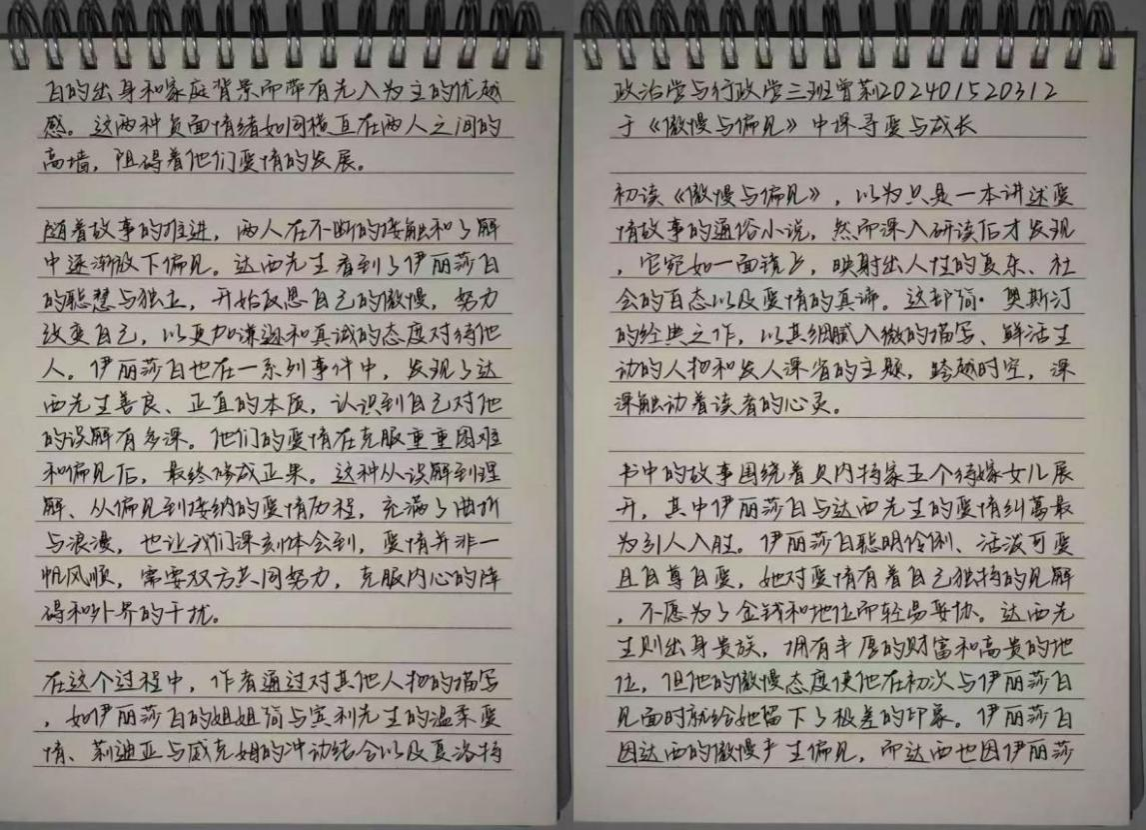 政治学与行政学三班曾莉202401520312
于《傲慢与偏见》中探寻爱与成长
初读《傲慢与偏见》，以为只是一本讲述爱
情故事的通俗小说，然而深入研读后才发现
，它宛如一面镜子，映射出人性的复杂、社
会的百态以及爱情的真谛。这部简·奥斯汀
的经典之作，以其细腻入微的描写、鲜活生
动的人物和发人深省的主题，跨越时空，深
深触动着读者的心灵。
书中的故事围绕着贝内特家五个待嫁女儿展
开，其中伊丽莎白与达西先生的爱情纠葛最
为引人入胜。伊丽莎白聪明伶俐、活泼可爱
且自尊自爱，她对爱情有着自己独特的见解
，不愿为了金钱和地位而轻易妥协。达西先
生则出身贵族，拥有丰厚的财富和高贵的地
位，但他的傲慢态度使他在初次与伊丽莎白
见面时就给她留下了极差的印象。伊丽莎白
因达西的傲慢产生偏见，而达西也因伊丽莎
白的出身和家庭背景而带有先入为主的优越
感。这两种负面情绪如同横亘在两人之间的
高墙，阻碍着他们爱情的发展。
随着故事的推进，两人在不断的接触和了解
中逐渐放下偏见。达西先生看到了伊丽莎白
的聪慧与独立，开始反思自己的傲慢，努力
改变自己，以更加谦逊和真诚的态度对待他
人。伊丽莎白也在一系列事件中，发现了达
西先生善良、正直的本质，认识到自己对他
的误解有多深。他们的爱情在克服重重困难
和偏见后，最终修成正果。这种从误解到理
解、从偏见到接纳的爱情历程，充满了曲折
与浪漫，也让我们深刻体会到，爱情并非一
帆风顺，需要双方共同努力，克服内心的障
碍和外界的干扰。
在这个过程中，作者通过对其他人物的描写
，如伊丽莎白的姐姐简与宾利先生的温柔爱
情、莉迪亚与威克姆的冲动结合以及夏洛特